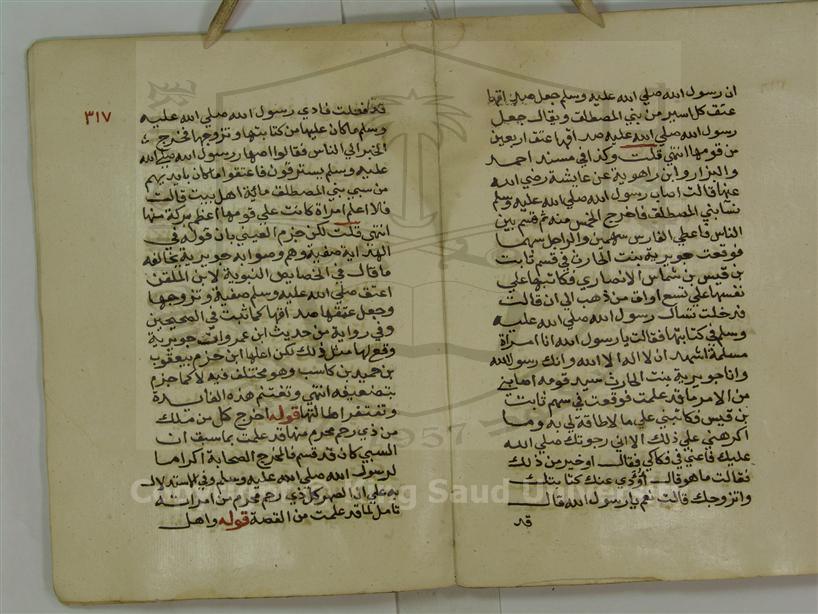 ان رسول الله صلي الله عليه وسلم جعل صداقها
عتق كل اسير من بني المصطلق ويقال جعل
رسول الله صلي الله عليه صداقها عتق اربعين
من قومها انتهي قلت وكذا في مسند احمد
والبزار وابن راهوية عن عايشة رضي الله
عنها قالت اصاب رسول الله صلي الله عليه وسلم
نسا بني المصطلق فاخرج الخمس منه ثم قسم بين
الناس فاعطي الفارس سهمين والراجل سهما
فوقعت جويرية بنت الحارث في قسم ثابت
بن قيس بن شماس الانصاري فكاتبها علي
نفسها علي تسع اواق من ذهب الي ان قالت
فدخلت تسال رسول الله صلي الله عليه
وسلم في كتابتها فقالت يا رسول الله انا امراة
مسلمة اشهد ان لا اله الا الله وانك رسول الله
وانا جويرية بنت الحارث سيد قومه اصابني
من الامر ما قد علمت فوقعت في سهم ثابت
بن قيس فكاتبني علي ما لا طاقة لي به وما
اكرهني علي ذلك الا اني رجوتك صلي الله
عليك فاعني في فكاكي فقال او خير من ذلك
فقالت ما هو قال أؤدي عنك كتابتك
واتزوجك قالت نعم يا رسول الله قال
قد
٣١٧
قد فعلت فادي رسول الله صلي الله عليه
وسلم ما كان عليها من كتابتها وتزوجها فخرج
الخبر الي الناس فقالوا اصهار رسول الله صلي الله
عليه وسلم يسترقون فاعتقوا ما كان بايديهم
من سبي بني المصطلق ماية اهل بيت قالت
فلا اعلم امراة كانت علي قومها اعظم بركة منها
انتهي قلت لكن جزم العيني بان قوله في
الهداية صفية وهم وصوابه جويرية يخالفه
ما قال في الخصايص النبوية لابن الملقن
اعتق صلي الله عليه وسلم صفية وتزوجها
وجعل عتقها صداقها كما ثبت في الصحيحين
وفي رواية من حديث ابن عمر وان جويرية
وقع لها مثل ذلك لكن اعلها ابن حزم بيعقوب
بن حميد بن كاسب وهو مختلف فيه لا كما جزم
بتضعيفه انتهي وتغتنم هذه الفايدة
وتغتفر اطالتها قوله اخرج كل من ملك
من ذي رحم محرم منها قد علمت بما سبق ان
السبي كان قد قسم فالمخرج الصحابة اكراما
لرسول الله صلي الله عليه وسلم وفي استدلال
به علي ان الصهر كل ذي رحم محرم من امراته
تامل لما قد علمت من القصة قوله واهل
1957
King Saud University